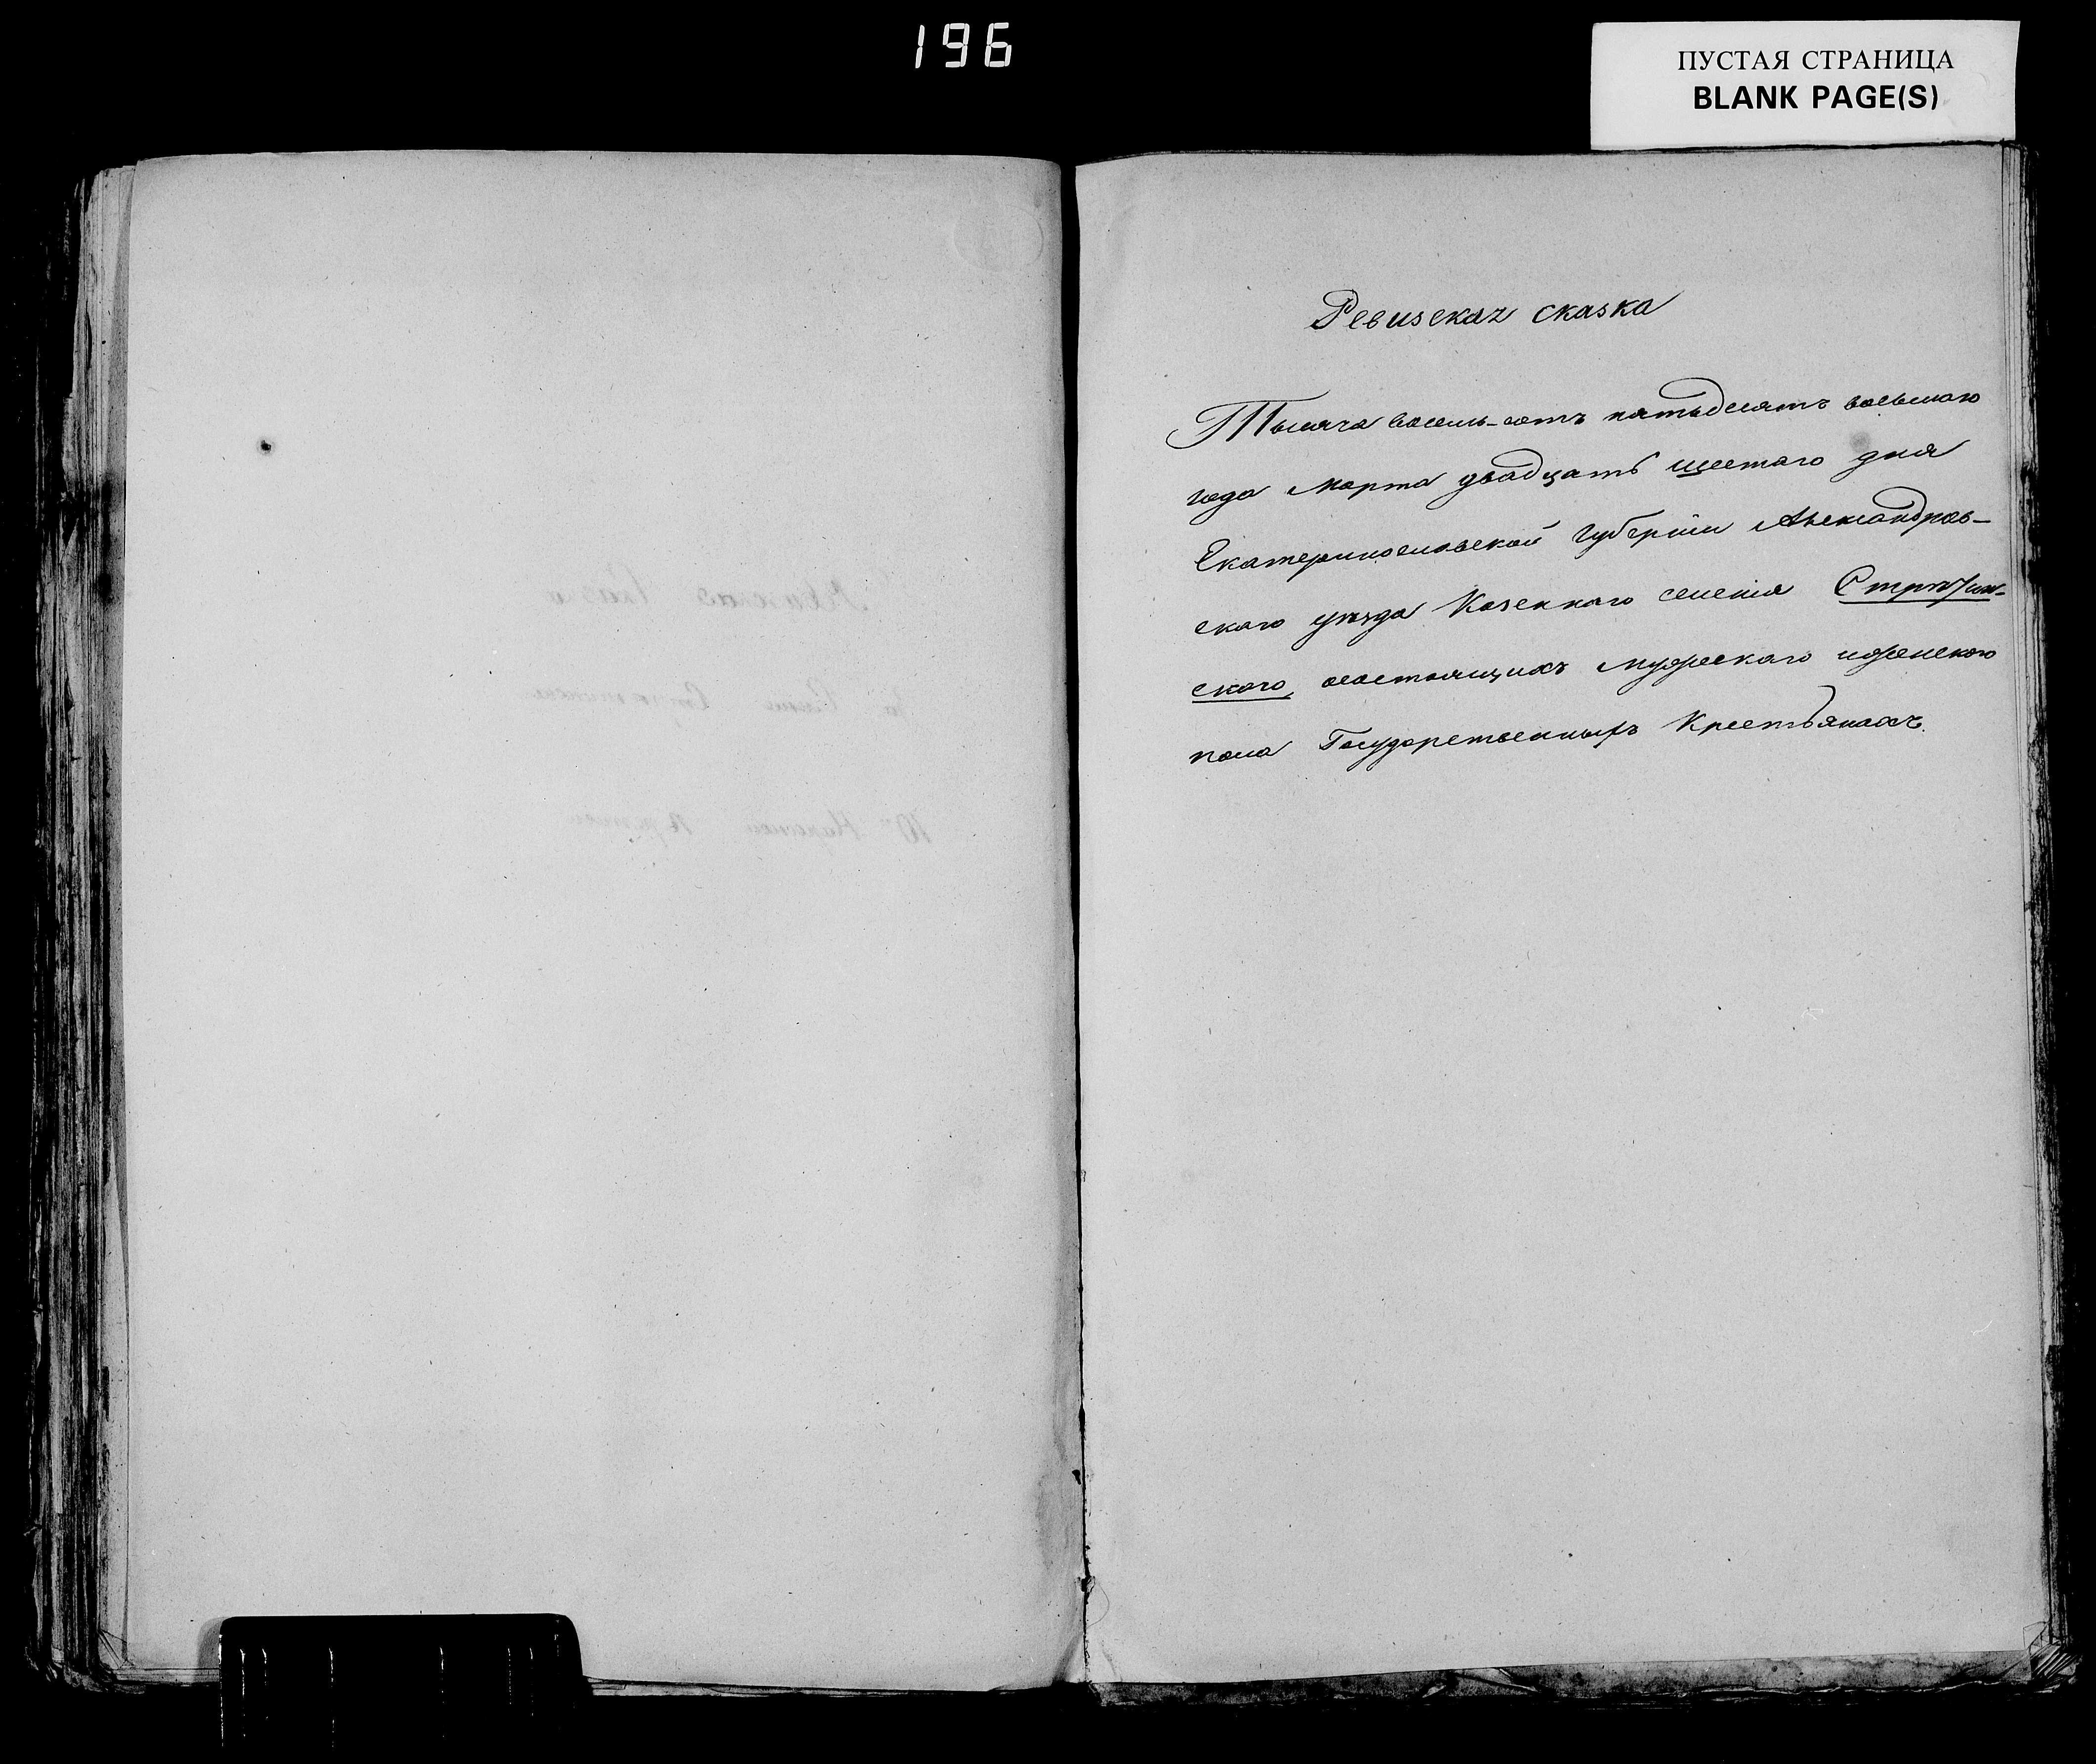 196
ПУСТАЯ СТРАНИЦА
BLANK PAGE(S)
Ревизская сказка
Тысяча восемь-сотъ пятьдесятъ восьмаго
года Марта двадцать шестаго дня
Екатеринославской Губерніи Александров-
скаго уѣзда Казеннаго селенія
скаго, состоящихъ мужескаго и женскаго
пола Государственныхъ Крестьянахъ.